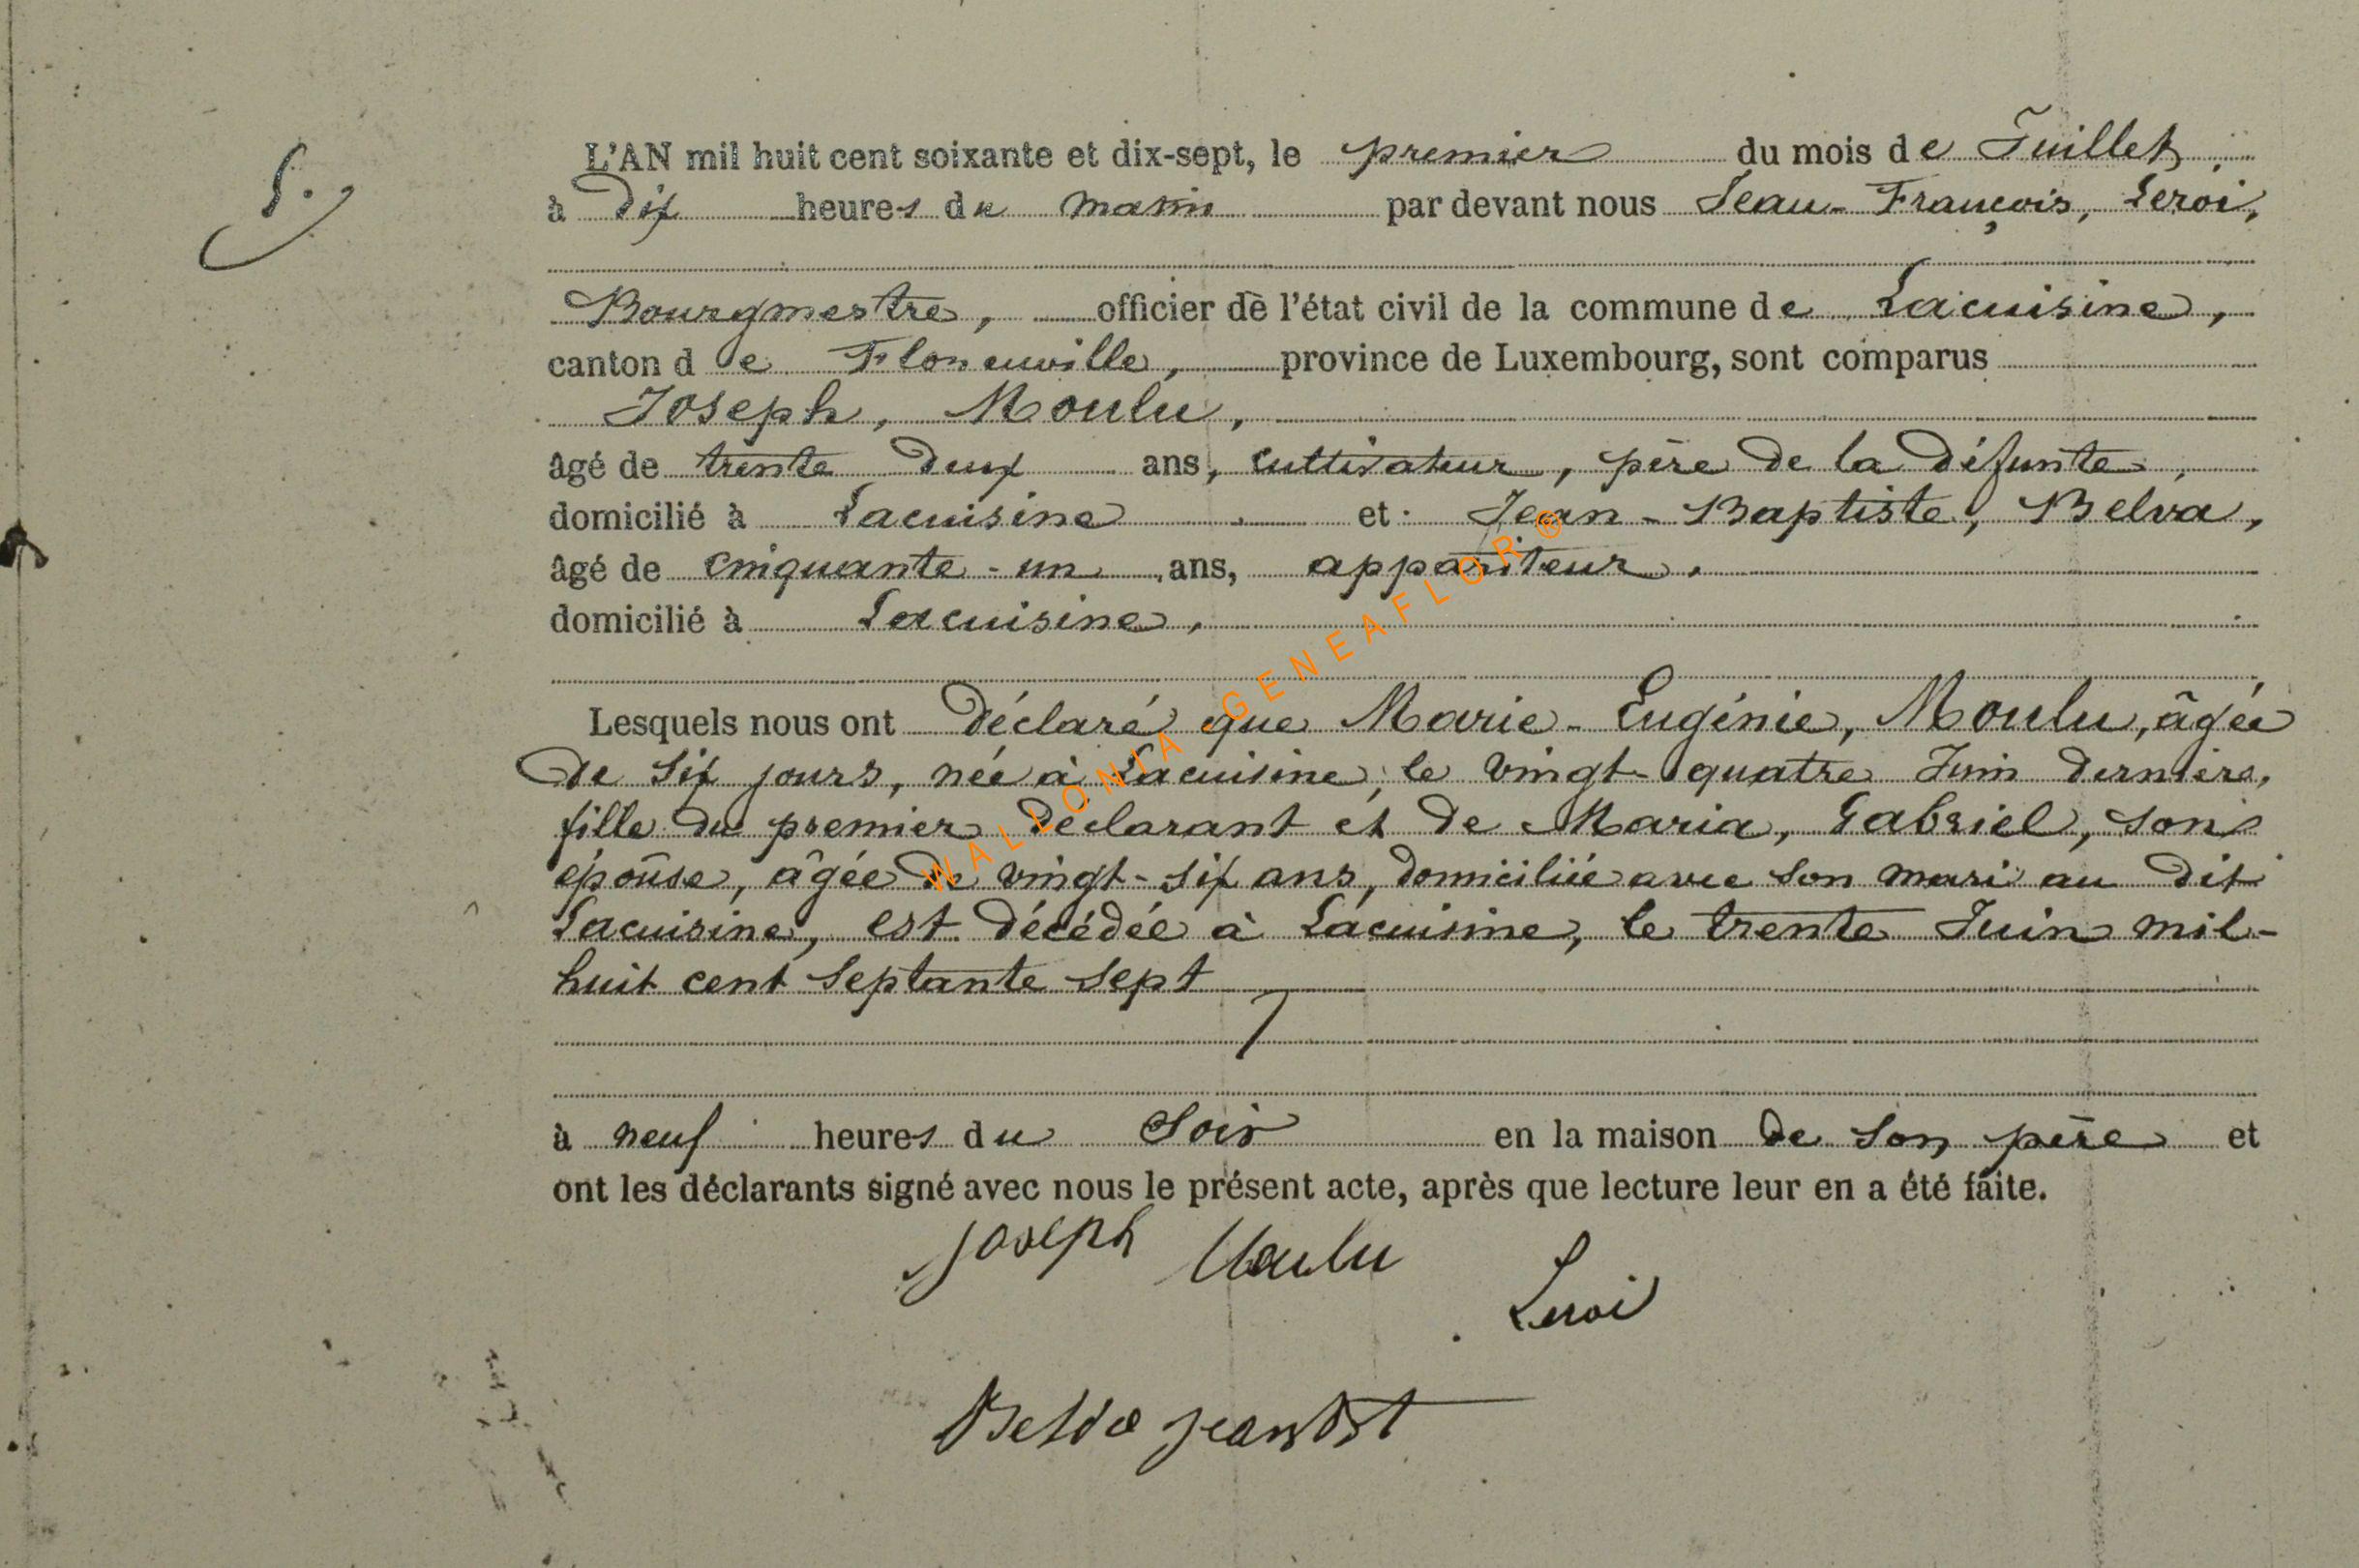 5.
L'AN mil huit cent soixante et dix-sept, le premier du mois de Juillet
à dix heures du matin par devant nous Jean-François, Leroi,
Bourgmestre, officier de l'état civil de la commune de Lacuisine,
canton de Florenville, province de Luxembourg, sont comparus
Joseph, Moulu,
âgé de trente deux ans, cultivateur, père de la défunte,
domicilié à Lacuisine et Jean-Baptiste, Belva,
âgé de cinquante-un ans, appariteur,
domicilié à Lacuisine,
Lesquels nous ont déclaré que Marie-Eugénie, Moulu, âgée
de six jours, née à Lacuisine, le vingt-quatre Juin dernière,
fille du premier déclarant et de Maria, Gabriel, son
épouse, âgée de vingt-six ans, domiciliée avec son mari au dit
Lacuisine, est décédée à Lacuisine, le trente Juin mil-
huit cent septante sept
à neuf heures du soir en la maison de son père et
ont les déclarants signé avec nous le présent acte, après que lecture leur en a été faite.
Joseph Moulu
Leroi
Belva jean bst
WALLONIA GENEAFLOR®